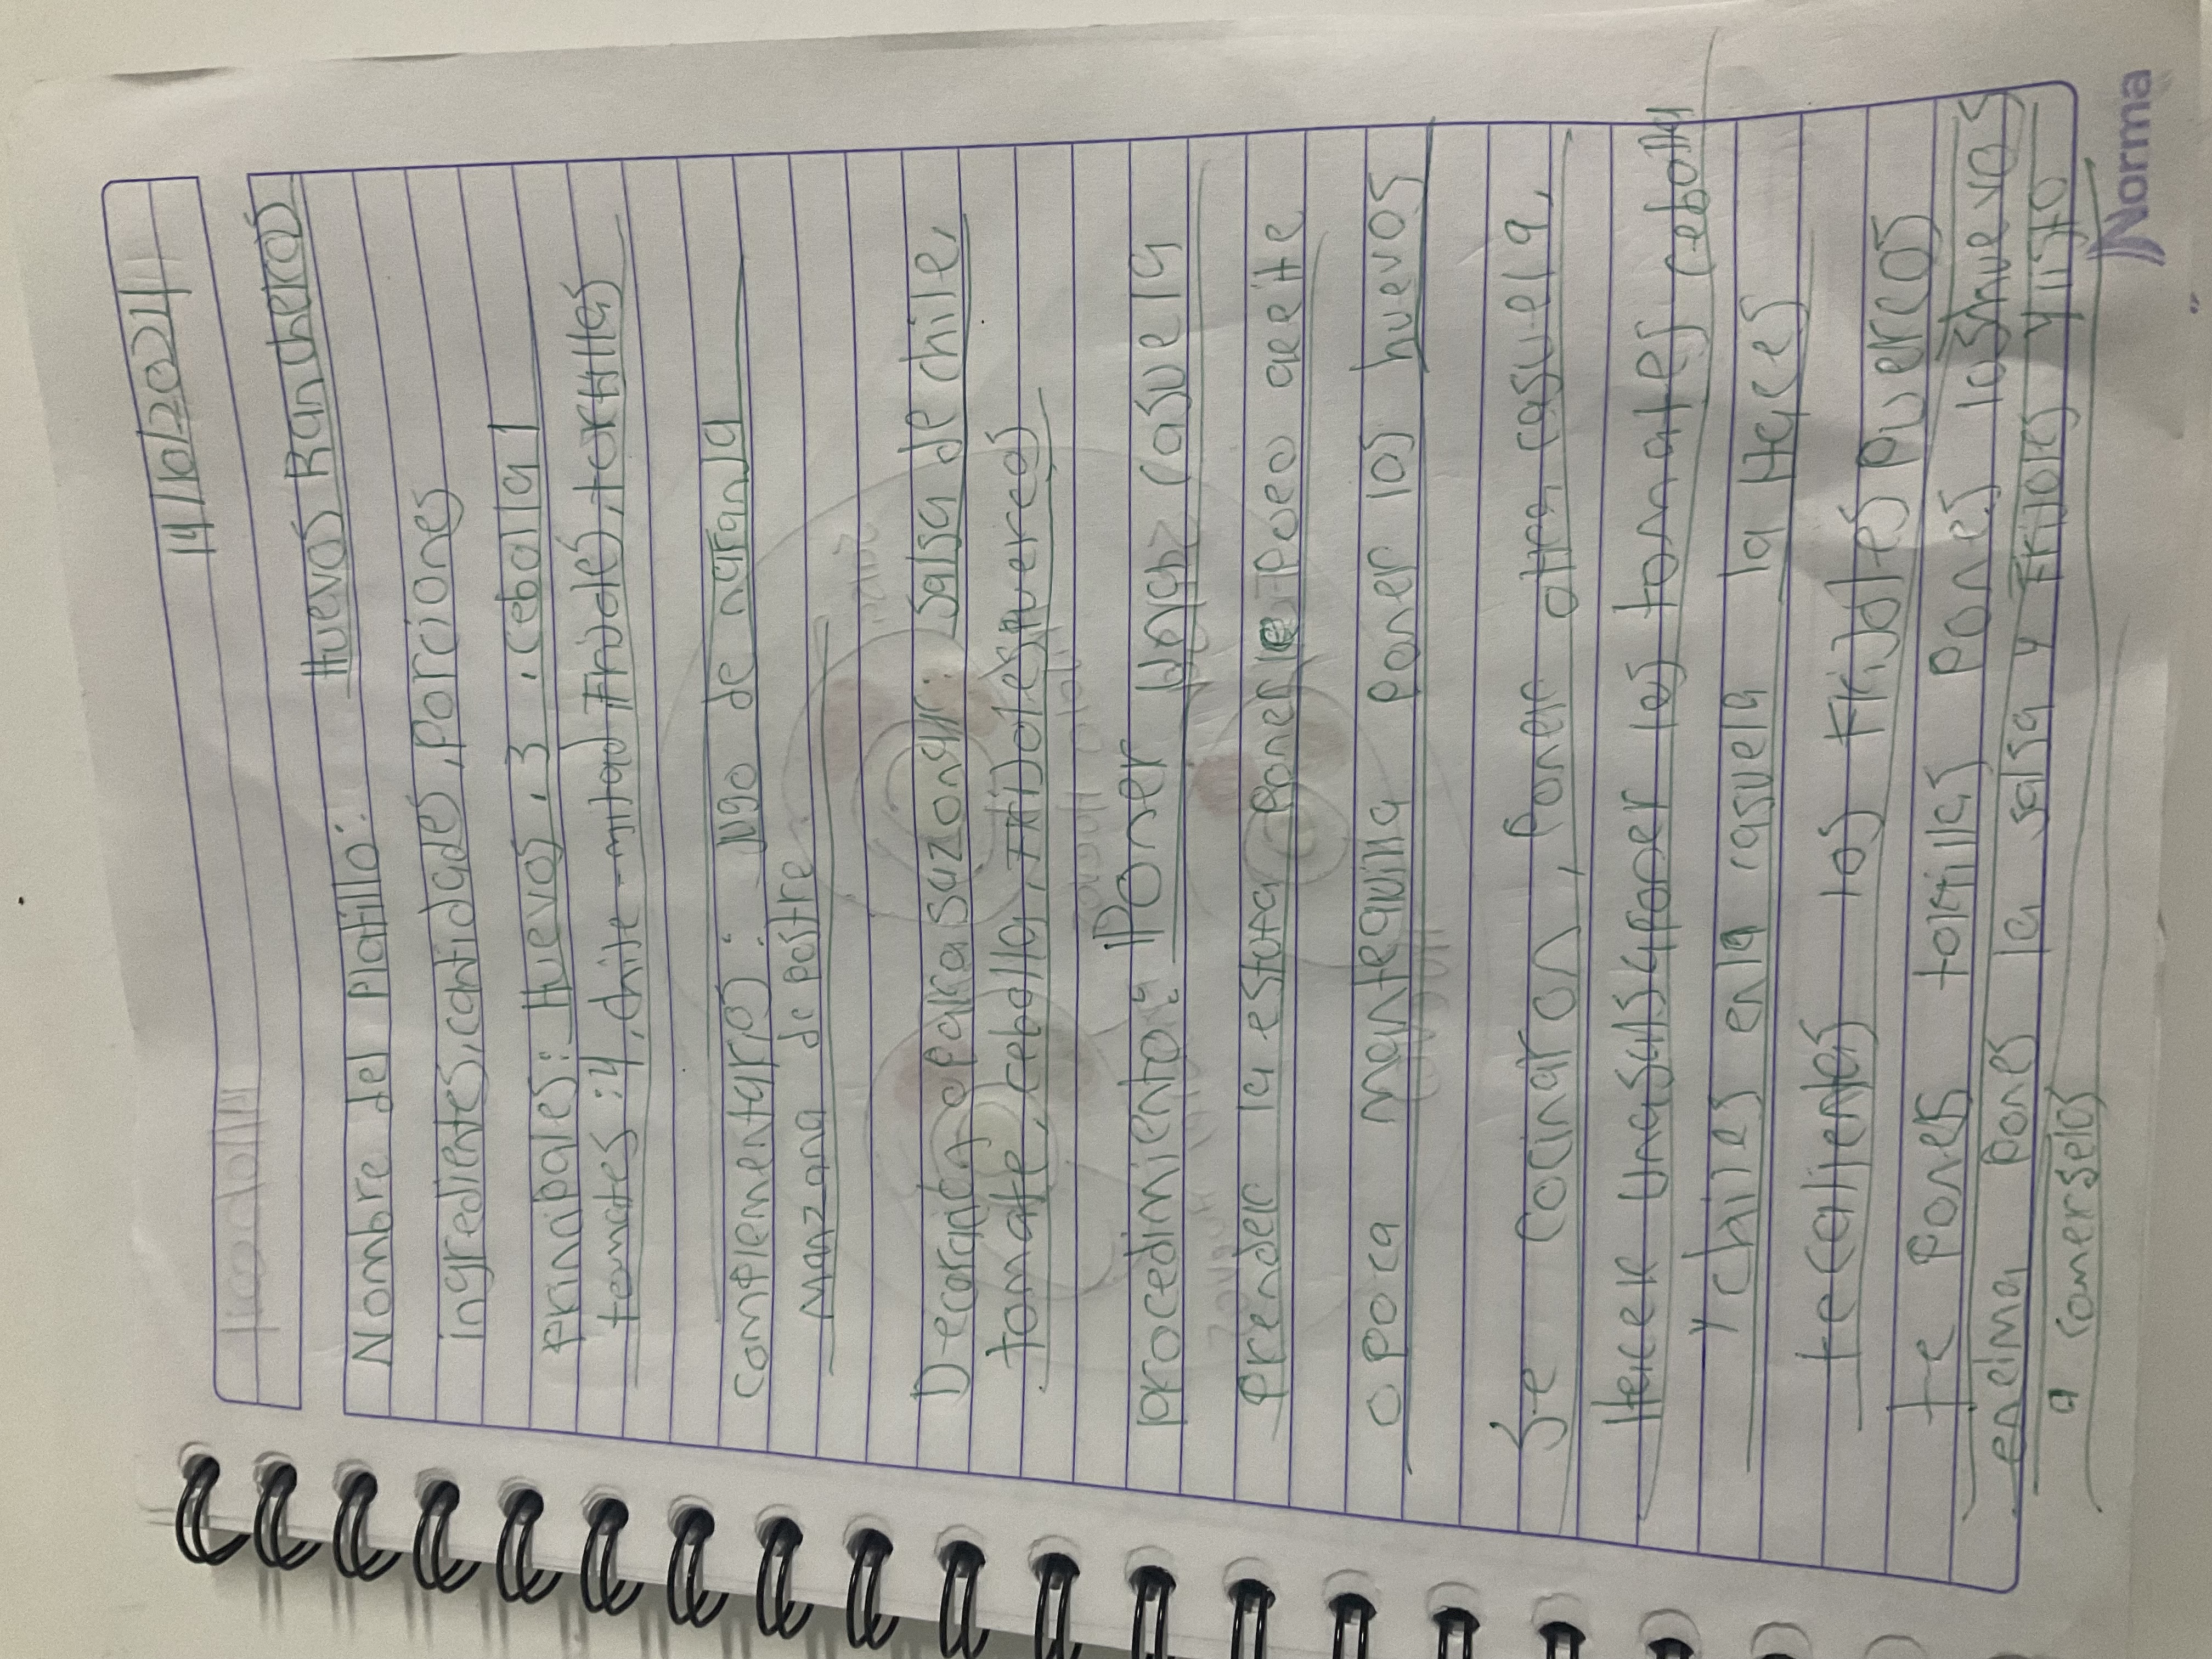 14/10/2021
Nombre del Platillo: Huevos Rancheros
ingredientes, cantidades, porciones
principales: Huevos, 3, cebolla 1
tomates: 4, chile - mitad Frijoles, tortillas
complementarios: Jugo de naranja
manzana de postre
Decoración o para sazonar: salsa de chile,
tomate, cebolla, Frijoles puercos
procedimiento: Poner una casuela
prender la estufa ponerle poco aceite
o poca mantequilla poner los huevos
Se cocinaron, poner otra casuela,
Hacer una salsa poner los tomates cebolla
y chiles en la casuela la Haces
te calientes los Frijoles puercos
te pones tortillas pones los huevos
encima pones la salsa y Frijoles y listo
a comerselos
Norma